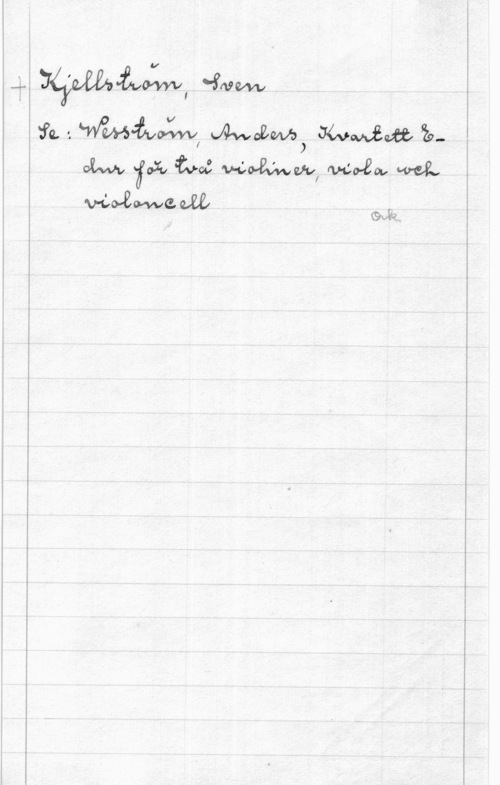 + Kjellström, Sven
Se: Wesström, Anders, Kvartett E-
dur för två violiner, viola och
violoncell